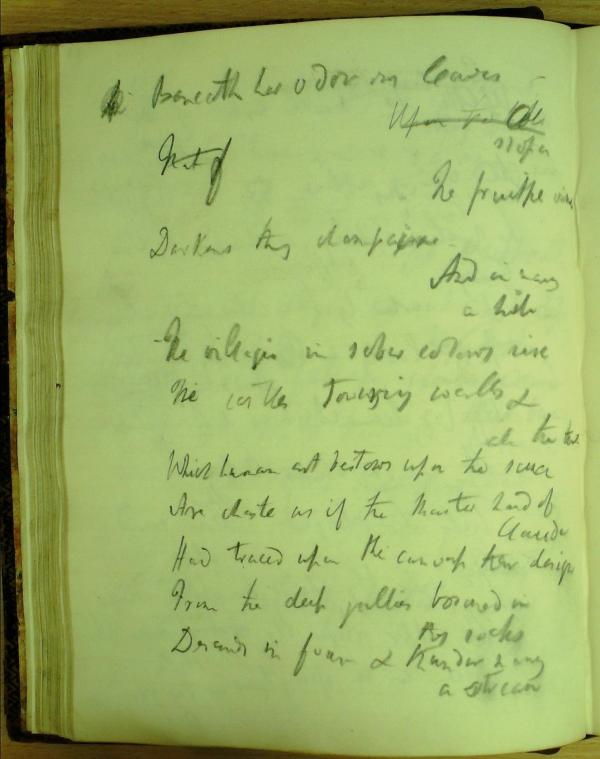 Beneath her odorous leaves -
Upon the
slope
That of
The fruitful vine
Darkens thy champaigne
And in many
a
The villages in sober colours rise
The castles Towering walls &
all the tints
Which human art bestows upon the scene
Are chaste as if the Master hand of
Claude
Had traced upon the canvass their design
From the deep gullies bosomed in
thy rocks
Descends in foam & thunder many
a stream